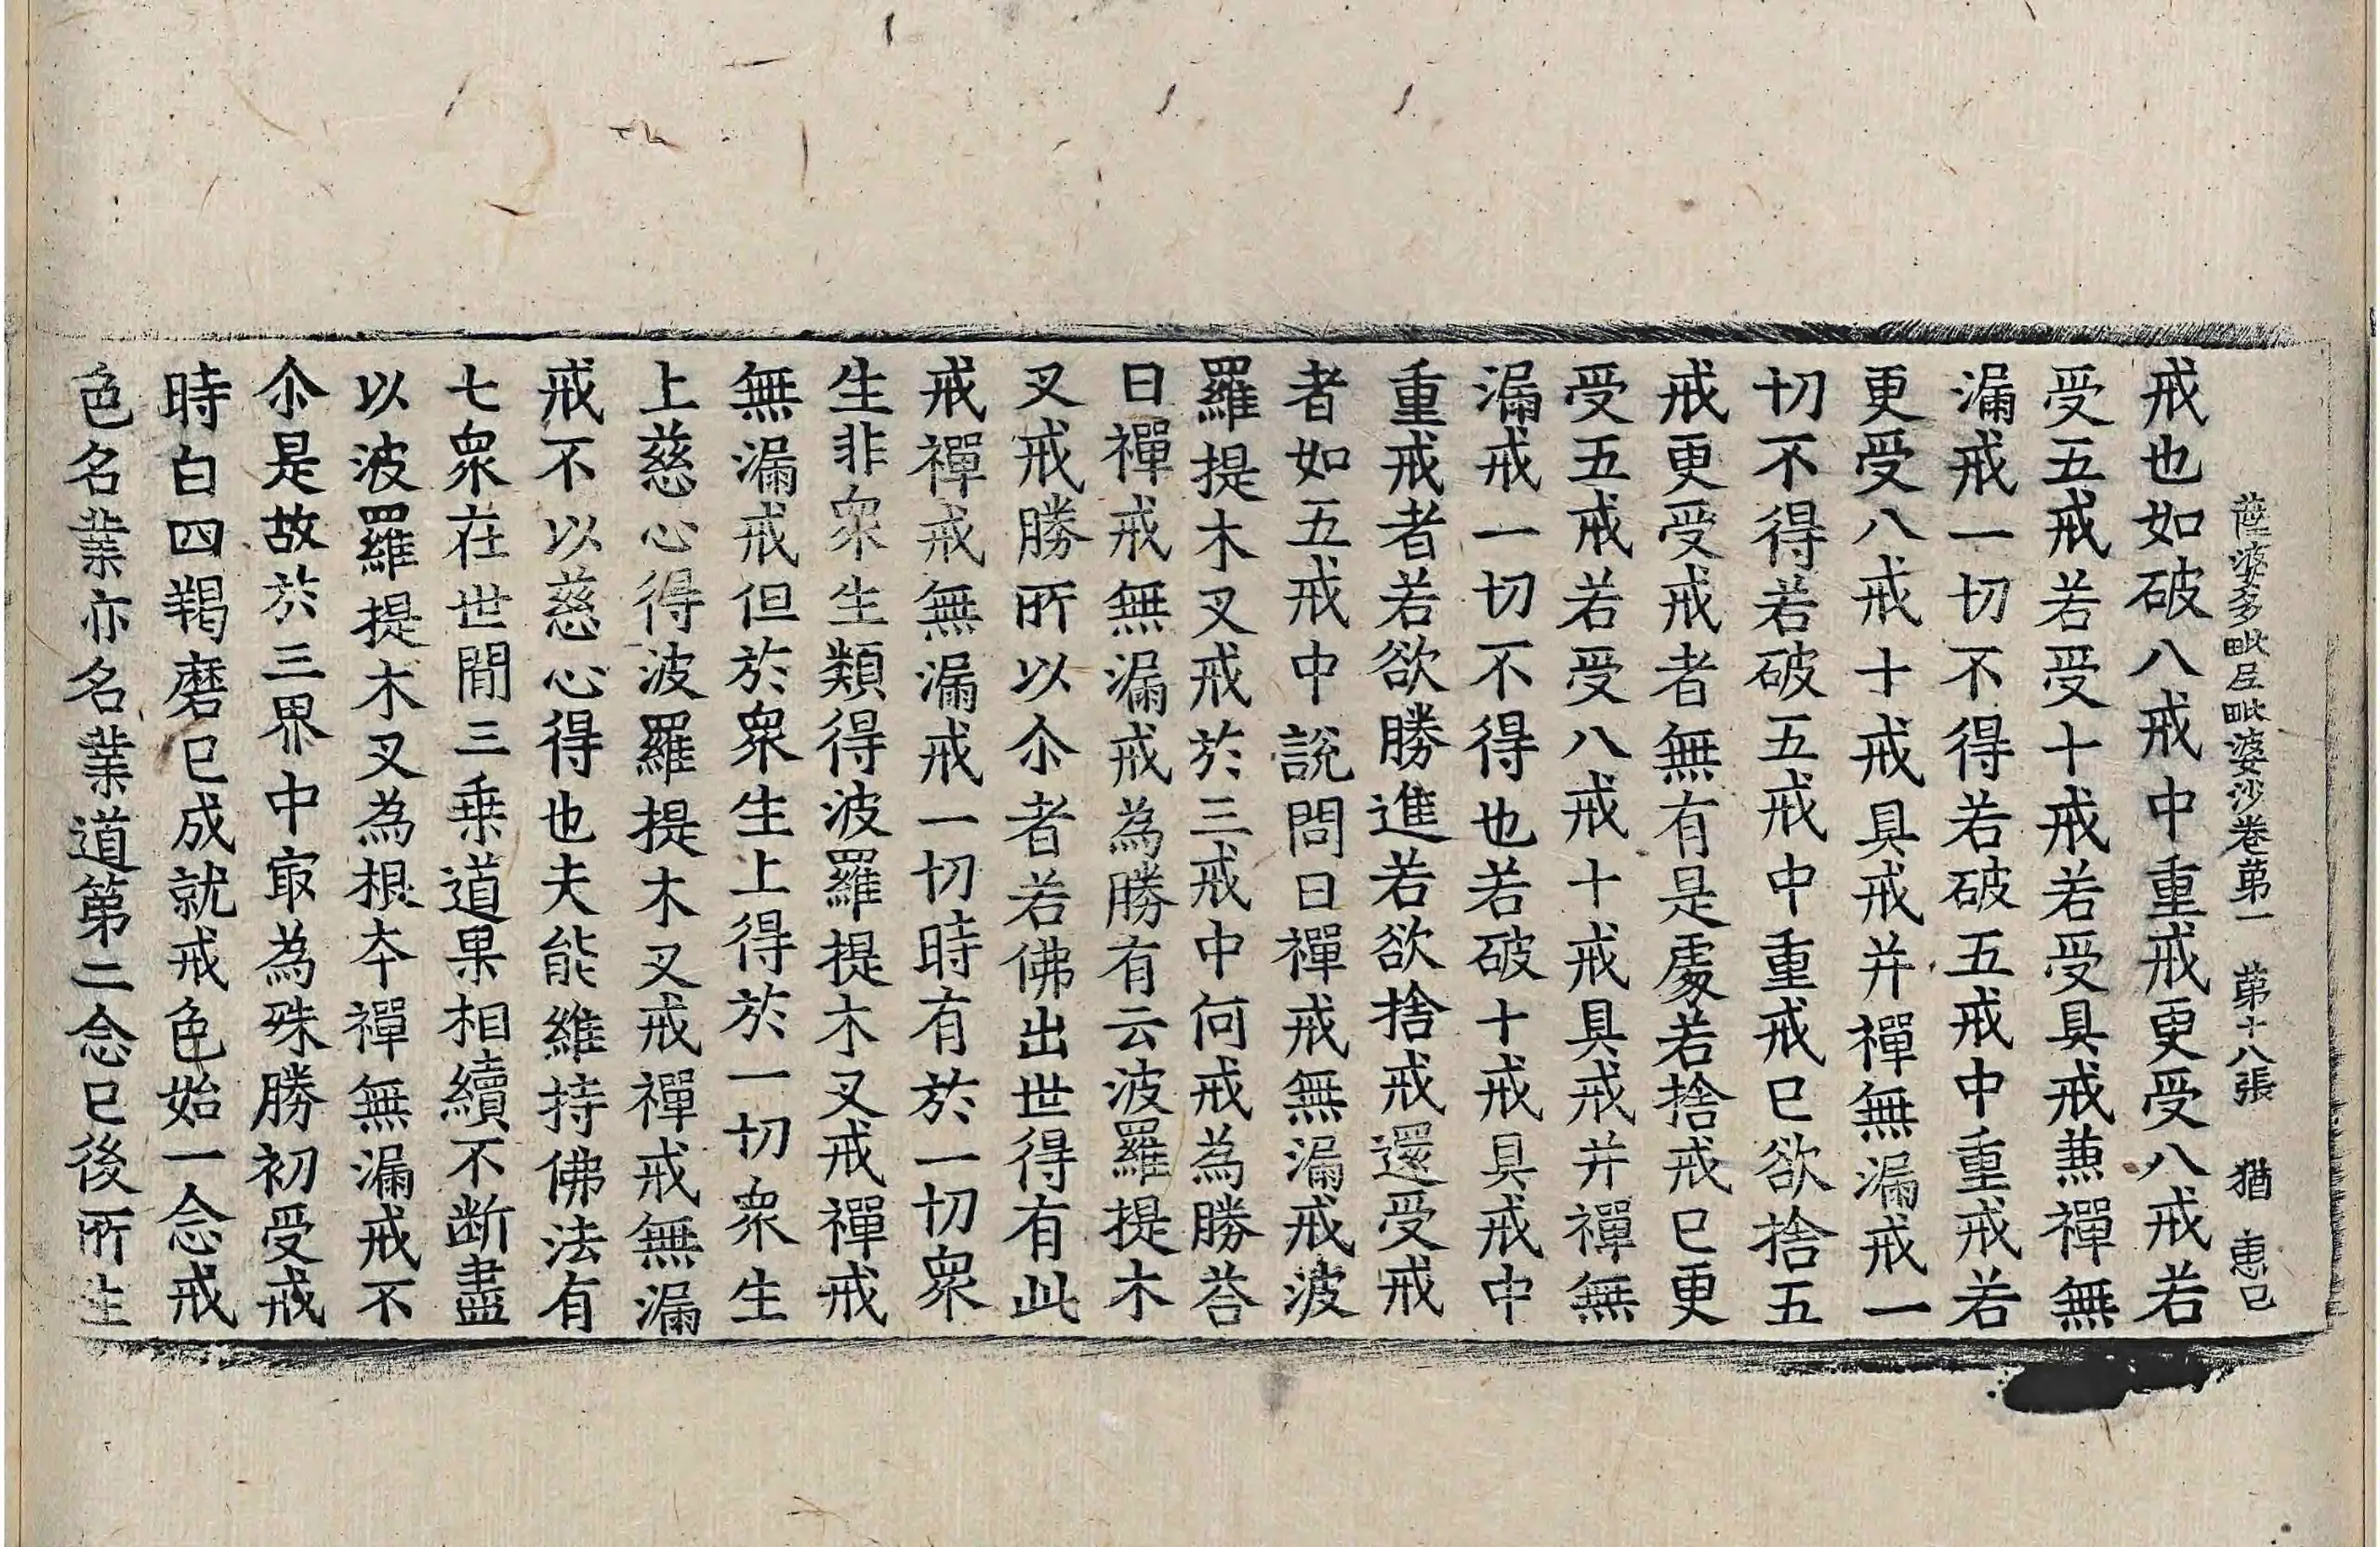 薩婆多毗尼毗婆沙卷苐一　苐十八張　猶　惠巳
戒也如破八戒中重戒更受八戒若
受五戒若受十戒若受具戒兼禪無
漏戒一切不得若破五戒中重戒若
更受八戒十戒具戒并禪無漏戒一
切不得若破五戒中重戒巳欲捨五
戒更受戒者無有是處若捨戒巳更
受五戒若受八戒十戒具戒并禪無
漏戒一切不得也若破十戒具戒中
重戒者若欲勝進若欲捨戒還受戒
者如五戒中說問曰禪戒無漏戒波
羅提木叉戒於三戒中何戒為勝荅
曰禪戒無漏戒為勝有云波羅提木
叉戒勝所以尒者若佛出世得有此
戒禪戒無漏戒一切時有於一切眾
生非眾生類得波羅提木叉戒禪戒
無漏戒但於眾生上得於一切眾生
上慈心得波羅提木叉戒禪戒無漏
戒不以慈心得也夫能維持佛法有
七眾在世閒三乗道果相續不断盡
以波羅提木叉為根夲禪無漏戒不
尒是故於三界中㝡為殊勝初受戒
時白四羯磨巳成就戒色始一念戒
色名業亦名業道第二念巳後所生